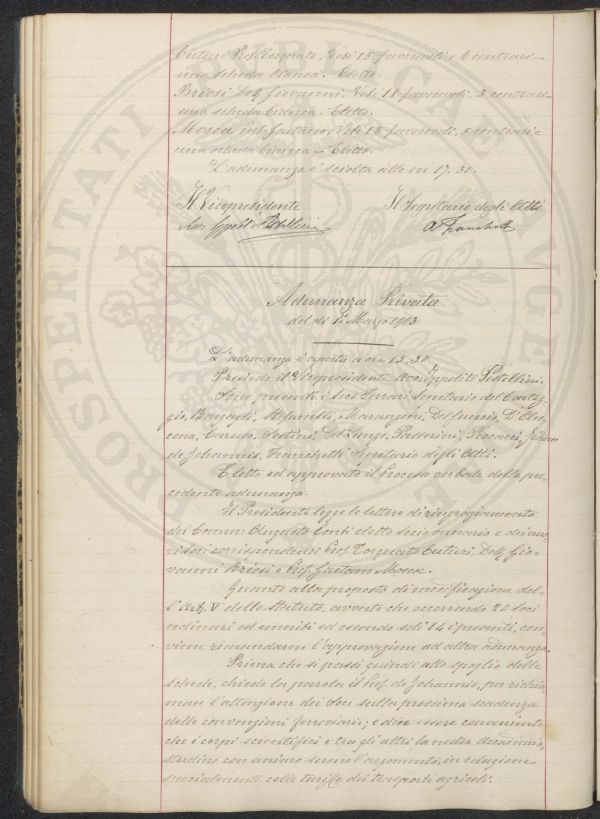 Cuturi Prof. Torquato, Voti 15 favorevoli e 6 contrari
una scheda bianca. Eletto.
Briosi Dott. Giovanni. Voti 18 favorevoli. 3 contrari
una scheda bianca. Eletto.
Mosca Prof. Gaetano, Voti 15 favorevoli, 6 contrari e
una scheda bianca - Eletto.
L'adunanza è sciolta alle ore 17.30.
Il Vicepresidente Il Segretario degli Atti
Avv. Ippolito Pestellini A Franchetti
Adunanza Privata
del dì 1º Marzo 1903
L'adunanza è aperta a ore 15.30
Presiede il Vicepresidente Avv. Ippolito Pestellini.
Sono presenti i Soci Ferrari Segretario del Carteg-
gio, Bargagli, Stefanelli, Marangoni, Del Guercio, D'Ancona,
Caruso, Sestini, Del Lungo, Passerini, Procacci, Johan
de Johannis, Franchetti Segretario degli Atti.
È letto ed approvato il Processo verbale della pre-
cedente adunanza.
Il Presidente legge le lettere di ringraziamento
del Comm. Augusto Conti eletto socio onorario e dei nuo
vi Soci corrispondenti Prof. Torquato Cuturi, Dott. Gio-
vanni Briosi e Prof. Gaetano Mosca.
Quanto alla proposta di modificazione del-
l'Art. V dello Statuto, avverte che occorrendo 20 Soci
ordinari ed emeriti ed essendo soli 14 i presenti, con-
viene rimandarne l'approvazione ad altra adunanza.
Prima che si passi quindi allo spoglio delle
schede, chiede la parola il Prof. de Johannis, per richia
mare l'attenzione dei Soci sulla prossima scadenza
delle convenzioni ferroviarie; e dice essere conveniente
che i corpi scientifici e tra gli altri la nostra Accademia,
studino con animo sereno l'argomento, in relazione
specialmente colle tariffe dei trasporti agricoli.
PROSPERITATI PUBLICAE AUGENDAE